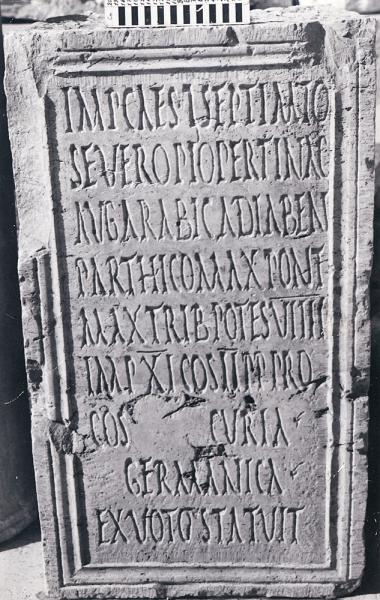 IMPCAESLSEPTIMIO
SEVEROPIOPERTINAC
AVGARABICADIABEN
PARTHICOMAXPONT
MAXTRIBPOTESVIIII
IMPXICOSIIPPPRO
COS CVRIA
GERMANICA
EXVOTOSTATVIT